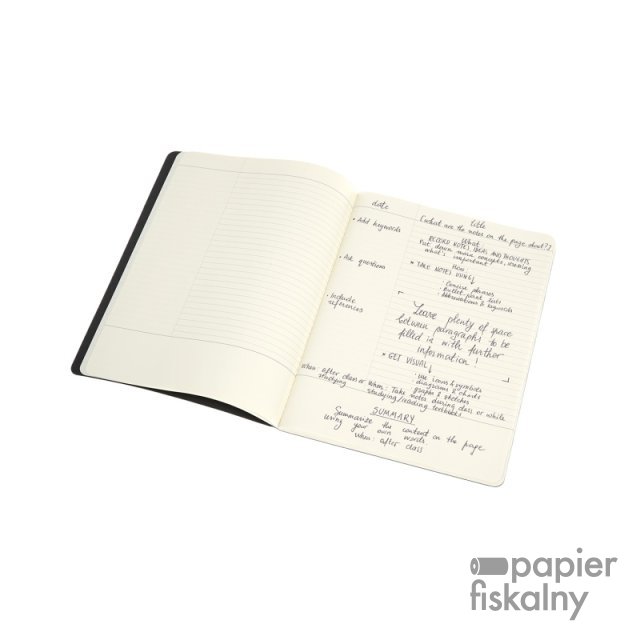 date
title
[what are the notes on the page about?]
• Add keywords
What
RECORD NOTES, IDEAS AND THOUGHTS
Put down main concepts, scanning
what's important
How
• Ask questions
* TAKE NOTES USING ↓
· Concise phrases
· Bullet point lists
· Abbreviations & keywords
• Include
references
Leave plenty of space
between paragraphs to be
filled is with further
information!
* GET VISUAL ↓
· Use icons & symbols
· diagrams & charts
· graphs & sketches
When: after class or
studying
When: Take notes during class or while
studying/reading textbooks
SUMMARY
Summarize the content on the page
using your own words
when: after class
papier
fiskalny